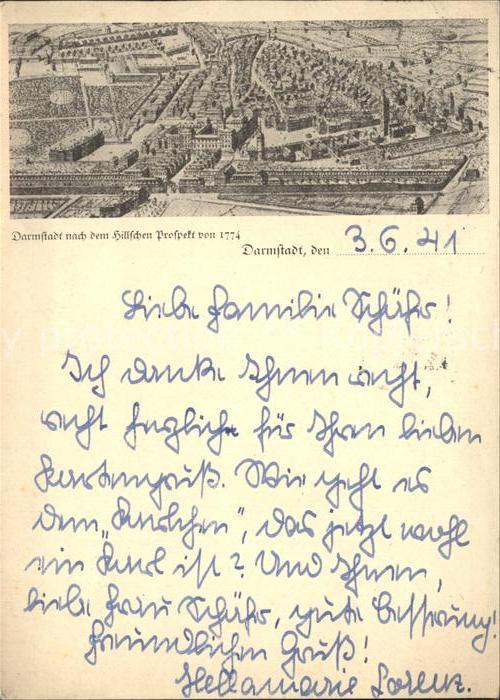 Darmstadt nach dem Hillschen Prospekt von 1774
Darmstadt, den 3.6.41
Liebe Familie Schäfer!
Ich danke Ihnen recht,
recht herzlich für Ihren lieben
Kartengruß. Wie geht es
dem „Karlchen", das jetzt wohl
ein Karl ist? Und Ihnen,
liebe Frau Schäfer, gute Besserung!
Freundlichen Gruß!
Hellamarie Lorenz.